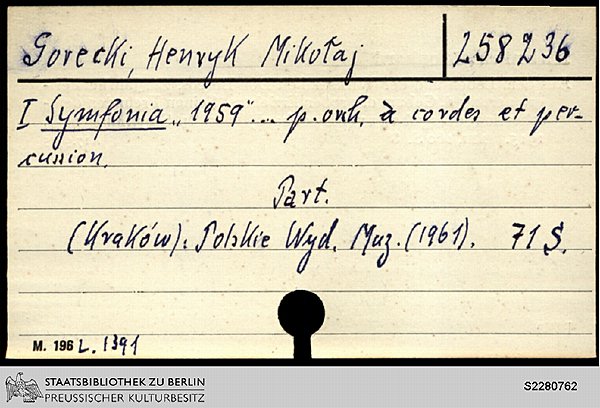 Gorecki, Henryk Mikołaj 258236
I Symfonia „1959"... p. orch. à cordes et per-
cussion.
Part.
(Kraków): Polskie Wyd. Muz. (1961). 71 S.
M. 196 L. 1391
STAATSBIBLIOTHEK ZU BERLIN
PREUSSISCHER KULTURBESITZ
S2280762